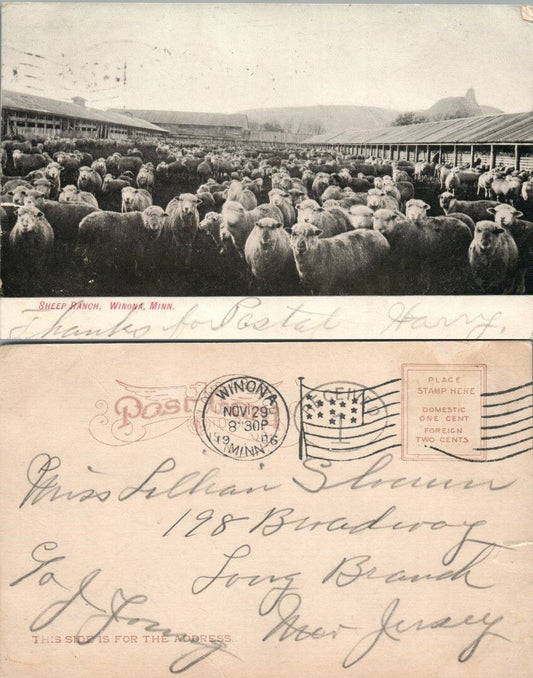 SHEEP RANCH, WINONA, MINN.
Thanks for Postal Harry.
Post
WINONA
NOV 29
8-30P
1906
MINN.
RECEIVED
PLACE
STAMP HERE
DOMESTIC
ONE CENT
FOREIGN
TWO CENTS
Miss Lillian
198 Broadway
Long Branch
C/o J. New Jersey
THIS SIDE IS FOR THE ADDRESS.